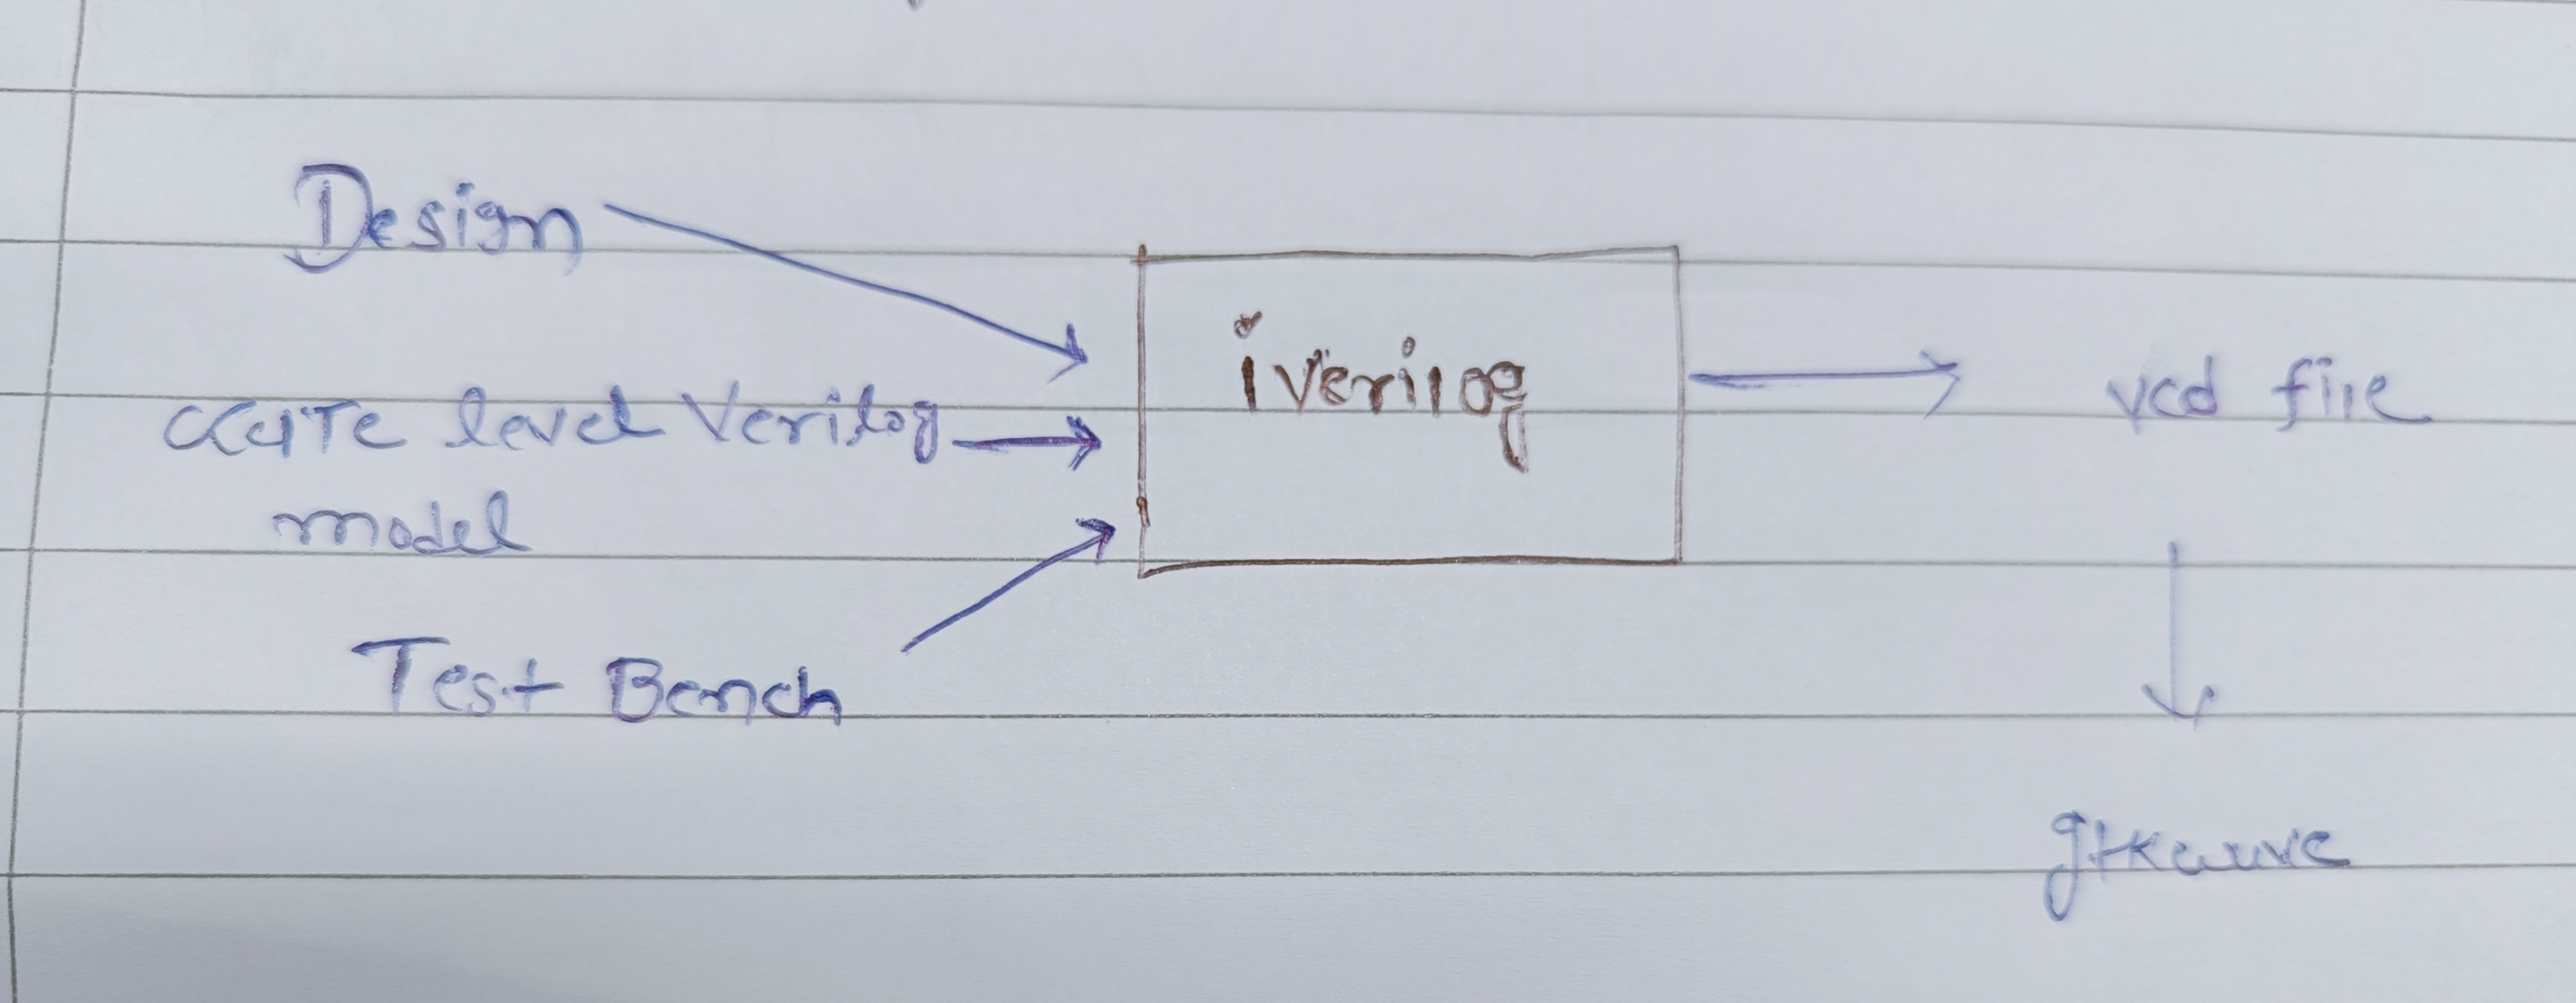 Design
Gate level Verilog
model
Test Bench
iverilog
vcd file
gtkwave